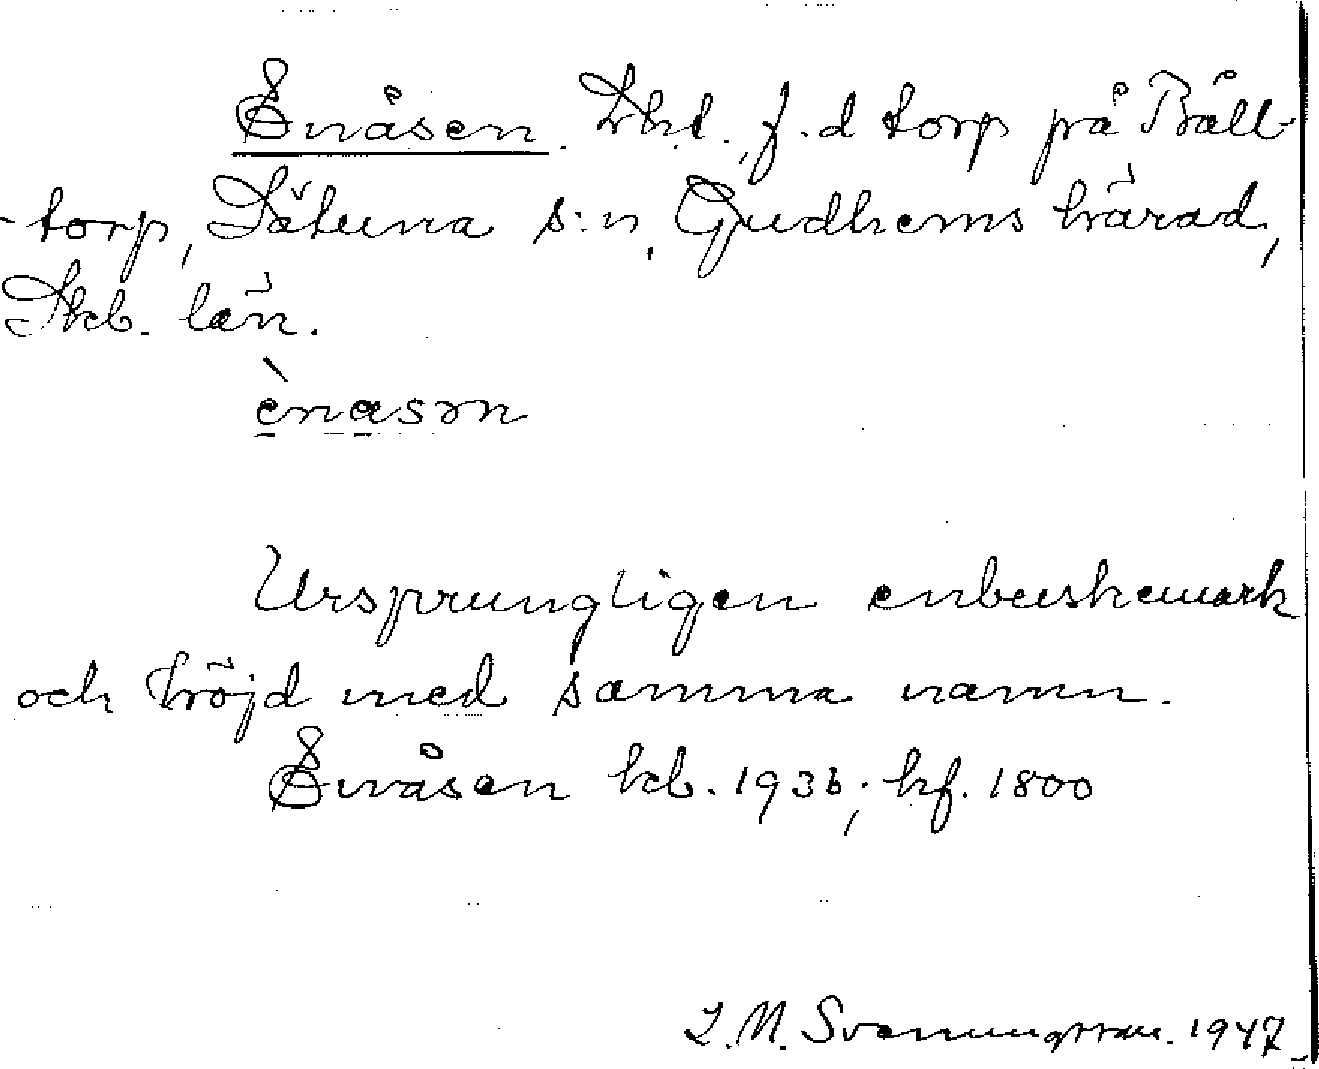 Enåsen. Lht., f.d torp på Bäll-
-torp, Sätuna s:n, Gudhems härad,
Skb. län.
ènasɔn
Ursprungligen enbuskemark
och höjd med samma namn.
Enåsen kb. 1936; hf. 1800
L.M. Svenungsson. 1947